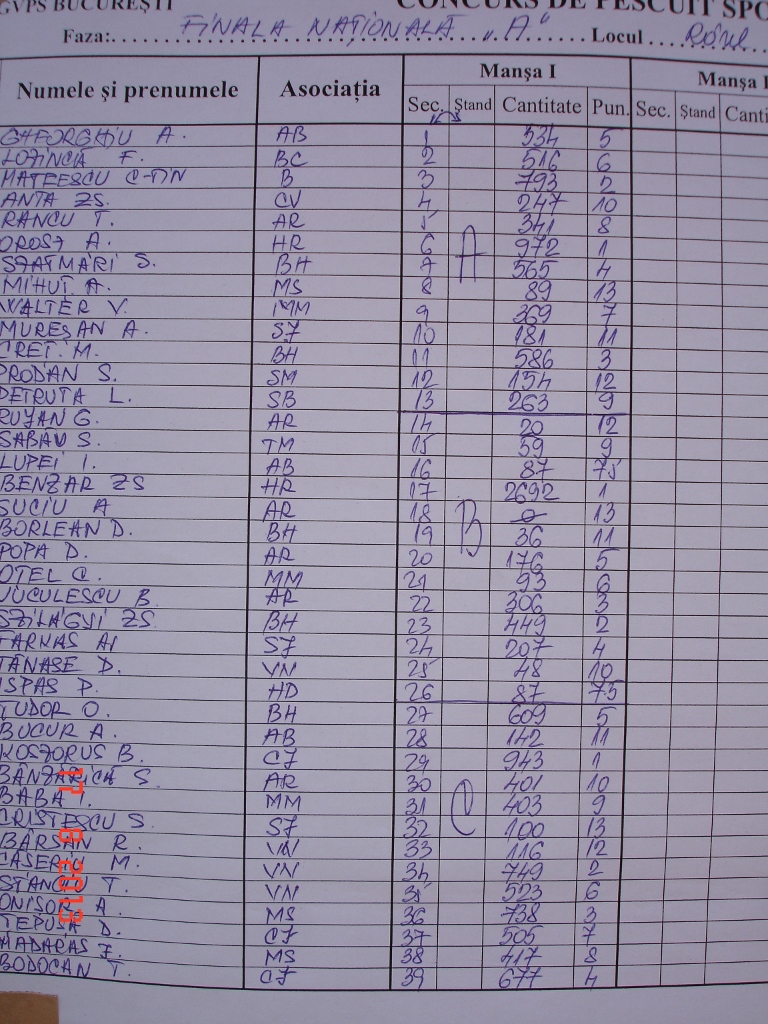 GVPS BUCUREȘTI CONCURS DE PESCUIT SPO
Faza: FINALA NAȚIONALĂ "A" Locul
Numele și prenumele Asociația Manșa I Manșa I
Sec. Ștand Cantitate Pun. Sec. Ștand Canti
GHEORGHIU A. AB 1 534 5
LOZINCĂ F. BC 2 516 6
MATEESCU C-TIN B 3 793 2
ANTA ZS. CV 4 247 10
RANCU T. AR 5 341 8
OROSZ A. HR 6 972 1
A
SZATMARI S. BH 7 565 4
MIHUȚ A. MS 8 89 13
WALTER V. MM 9 369 7
MUREȘAN A. SJ 10 181 11
CREȚ. M. BH 11 586 3
PRODAN S. SM 12 154 12
PETRUTA L. SB 13 263 9
RUJAN G. AR 14 20 12
SABĂU S. TM 15 59 9
LUPEI I. AB 16 87 7.5
BENZAR ZS HR 17 2692 1
SUCIU A AR 18 0 13
B
BORLEAN D. BH 19 36 11
POPA D. AR 20 176 5
OTEL C. MM 21 93 6
VUCULESCU B. AR 22 306 3
SZILAGYI ZS BH 23 449 2
FARNAS SJ 24 207 4
TĂNASE D. VN 25 48 10
ISPAS P. HD 26 87 7.5
TUDOR O. BH 27 609 5
BUCUR A. AB 28 142 11
KOSZORUS B. CJ 29 943 1
BÂNZARICĂ S. AR 30 401 10
BABA I. MM 31 403 9
C
CRISTESCU S. SJ 32 100 13
BÂRSAN R. VN 33 116 12
CASERIU M. VN 34 749 2
STANCU T. VN 35 523 6
ONISOR A. MS 36 738 3
TEPUSA D. CJ 37 505 7
MADARAS Z. MS 38 417 8
BODOCAN T. CJ 39 677 4
17 8 2013